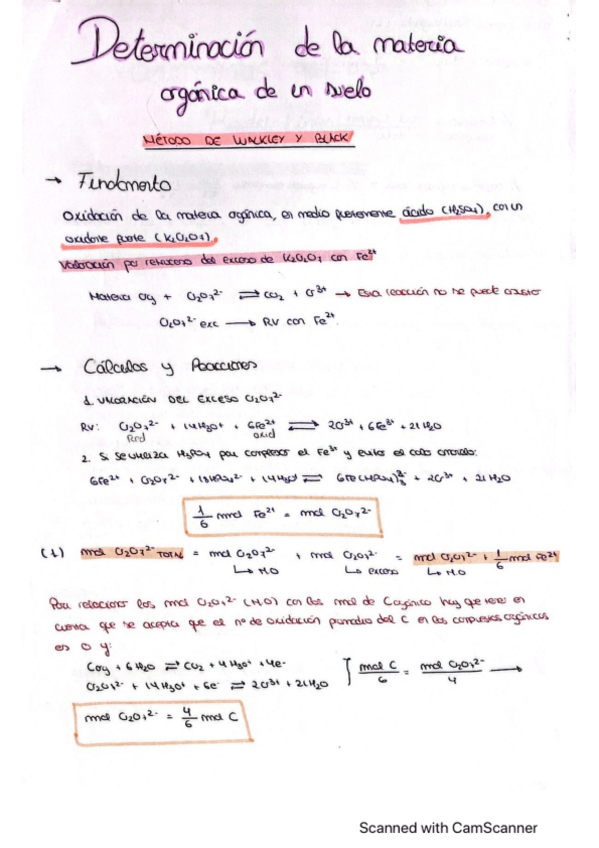 Determinación de la materia
orgánica de un suelo
MÉTODO DE WALKLEY Y BLACK
→ Fundamento
Oxidación de la materia orgánica, en medio fuertemente ácido (H2SO4), con un
oxidante fuerte (K2Cr2O7).
Valoración por retroceso del exceso de K2Cr2O7 con Fe2+
Materia Org + Cr2O7 2- ⇌ CO2 + Cr3+ → Esta reacción no se puede ajustar
Cr2O7 2- exc → RV con Fe2+.
→ Cálculos y Reacciones
1. VALORACIÓN DEL EXCESO Cr2O7 2-
RV: Cr2O7 2- + 14H3O+ + 6Fe2+ ⇌ 2Cr3+ + 6Fe3+ + 21H2O
Red oxid
2. Si se utiliza H3PO4 para complejar el Fe3+ y evitar el color amarillo:
6Fe2+ + Cr2O7 2- + HPO4 2- + 14H3O+ ⇌ 6Fe(HPO4)2 - + 2Cr3+ + 21H2O
1/6 mmol Fe2+ = mmol Cr2O7 2-
(1) mmol Cr2O7 2- TOTAL = mmol Cr2O7 2- + mmol Cr2O7 2- = mmol Cr2O7 2- + 1/6 mmol Fe2+
↳ M.O ↳ exceso ↳ M.O
Para relacionar los mmol Cr2O7 2- (M.O) con los mmol de C orgánico hay que tener en
cuenta que se acepta que el nº de oxidación promedio del C en los compuestos orgánicos
es 0 y:
Corg + 6H2O ⇌ CO2 + 4H3O+ + 4e-
Cr2O7 2- + 14H3O+ + 6e- ⇌ 2Cr3+ + 21H2O } mmol C/6 = mmol Cr2O7 2-/4 →
mmol Cr2O7 2- = 4/6 mmol C
Scanned with CamScanner